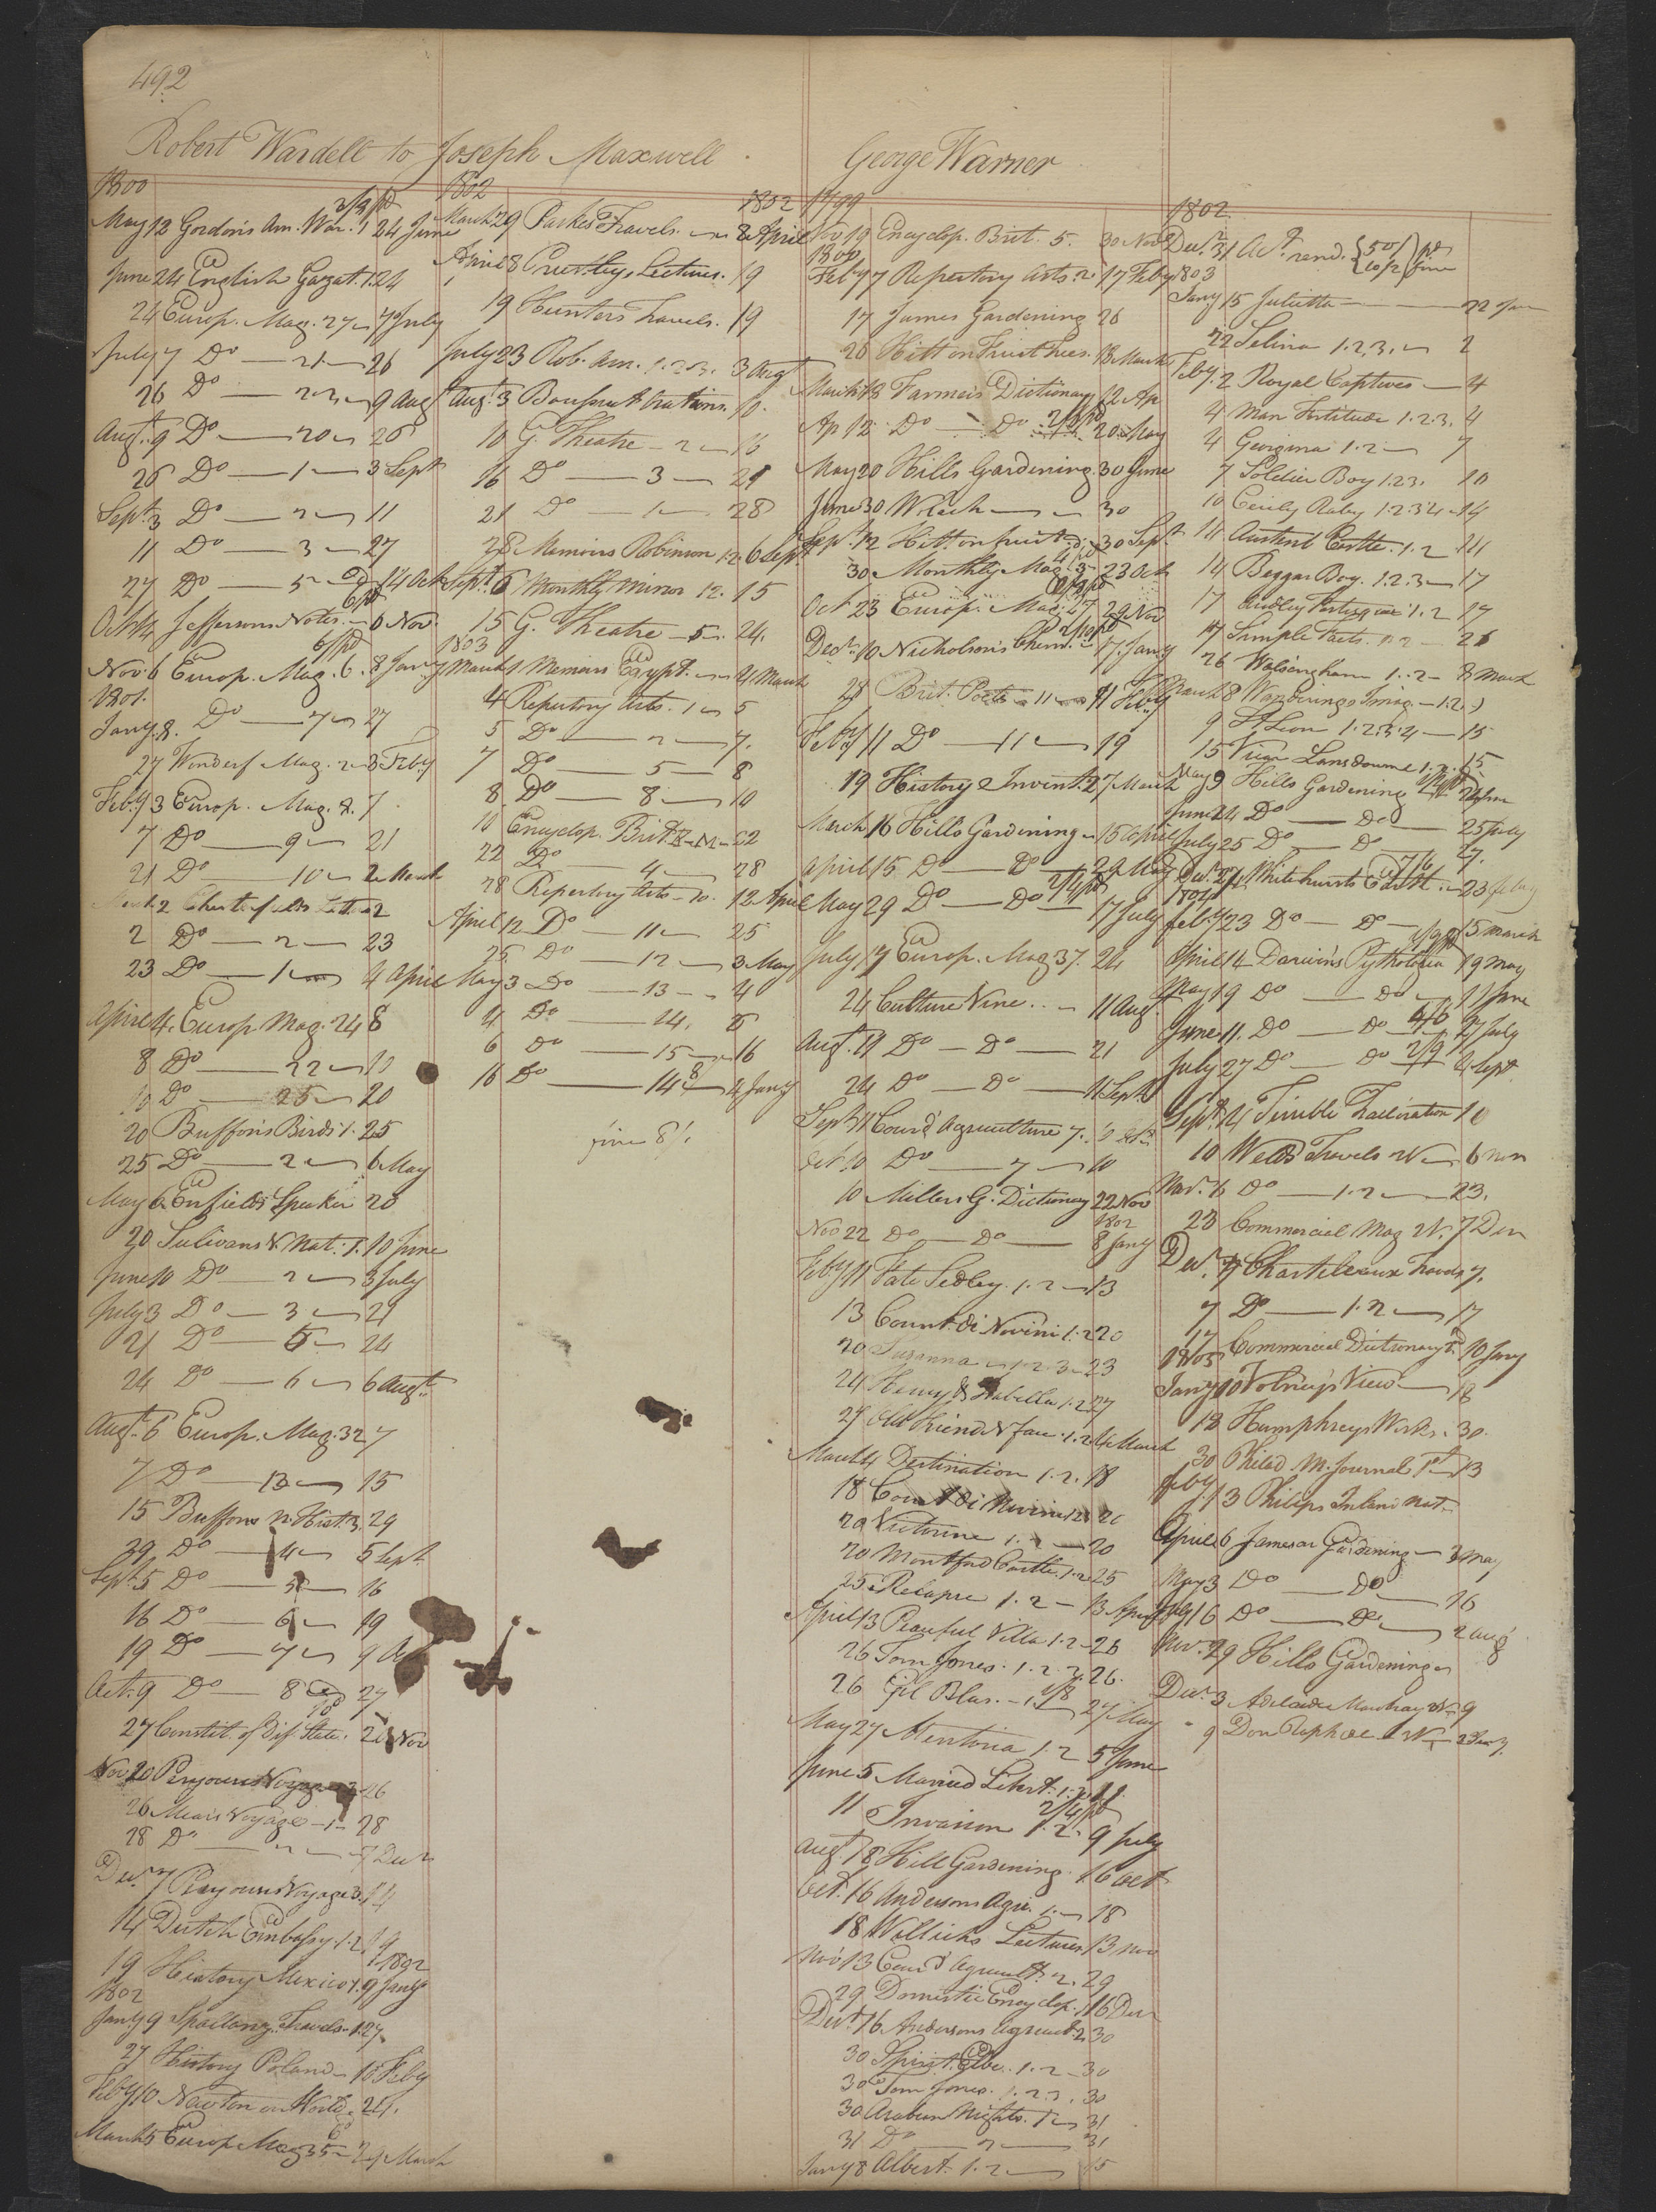 492
Robert Wardell to Joseph Maxwell
1800
May 12 Gordons Am. War. 1 24 June
2/9 pd
June 24 English Gazat. 1. 24
24 Europ. Mag. 27 7 July
July 7 Do 21 26
26 Do 22 9 Aug
Augt. 9 Do 20 26
26 Do 1 3 Sept
Sept. 3 Do 2 11
11 Do 3 27
27 Do 5 14 Oct
Oct 14 Jeffersons Notes 6 Nov
6/ pd
Nov 6 Europ. Mag. 6. 8 Jany
1801.
Jany. 8. Do 7 27
27 Wonderf Mag. 2 3 Feby
Feby 3 Europ. Mag. 8. 7
7 Do 9 21
21 Do 10 2 March
2 Do 2 23
23 Do 1 4 April
April 4. Europ Mag. 24 8
8 Do 22 10
10 Do 25 20
20 Buffons Birds 1. 25
25 Do 2 6 May
May 6 Enfields Speaker 20
20 Sulivans V. Nat. 1. 10 June
June 10 Do 2 3 July
July 3 Do 3 21
21 Do 5 24
24 Do 6 6 Augt.
Augt. 6 Europ. Mag. 32 7
7 Do 13 15
15 Buffons N. Hist. 3. 29
29 Do 4 5 Sept
Sept. 5 Do 5 16
16 Do 6 19
19 Do 7 9
Oct. 9 Do 8 27
27 Constit. of Dif. State. Nov
Nov 20 26
26 Mears Voyage 1 28
28 Do 2 7 Decr
Decr. 7
14 Dutch Embassy 1. 2 19
1802
19 History Mexico 1. 9 Jany
1802
Jany 9 Spallanz. Travels 1. 27
27 History Poland 10 Feby
Feby 10 Newton on World
March 5 Europ Mag 35 29 March
1802
1802
March 29 Parkes Travels 8 April
April 8 Priestleys Lectures. 19
19 Hunters Travels. 19
July 23 Rob. Am. 1. 2. 3. 3 Augt
Augt. 3 10.
10 G. Theatre 2 16
16 Do 3 21
21 Do 1 28
28 Memoirs Robinson 1. 2. 6 Sept
Sept. 6 Monthly Mirror 12. 15
15 G. Theatre 5 24.
1803
March 1 Memoirs Egypt. 4 March
4 Repertory Arts. 1 5
5 Do 2 7.
7 Do 5 8
8 Do 8 10
10 Encyclop. Brit. 22
22 Do 4 28
28 Repertory Arts 10. 12 April
April 12 Do 11 25
25 Do 12 3 May
May 3 Do 13 4
4 Do 14. 6
6 Do 15 16
16 Do 14 4 Jany
fine 8/.
George Warner
1799
Nov 19 Encyclop. Brit. 5. 30 Nov
1800
Feby 7 Repertory Arts. 2. 17 Feby
17 James Gardening 26
26 Hitt on Fruit Trees. 18 March
March 18 Farmers Dictionary 12 Ap
Ap 12 Do Do 20 May
May 20 Hills Gardening. 30 June
June 30 30
Sept. 12 Hitt. on fruit 30 Sept.
30 Monthly Mag. 3 23 Oct
Oct 23 Europ. Mag. 27 29 Nov
Decr. 10 Nicholsons Chem. 17 Jany
28 Brit. Poets 11 11 Feby
Feby 11 Do 11 19
19 History & Invent. 2 7 March
March 16 Hills Gardening 15 April
April 15 Do Do 29 May
May 29 Do Do 17 July
2/4 pd
July 17 Europ. Mag 37. 24
24 Culture Vine 11 Aug.
Augt. 11 Do Do 21
24 Do Do 11 Sept
Sept 11 Cour'd Agriculture 7.
Oct 10 Do 7 10
10 Millers G. Dictionary 22 Nov
1802
Nov 22 Do Do 8 Jany
Feby 11 Fate Sedley. 1. 2 13
13 Count di Novini 1. 2 20
20 Susanna 1. 2. 3 23
24 Henry & Isabella 1. 2 27
27 Old Friend N face. 1. 2. 4 March
March 4 Destination 1. 2. 18
18 Count di Novini 1. 2 20
20 Victorine 1. 20
20 Montford Castle. 1. 2 25
25 Relapse 1. 2 13 April
April 13 Peaceful Villa 1. 2 26
26 Tom Jones. 1. 2. 3. 26.
26 Gil Blas. 1. 27 May
May 27 Mentoria 1. 2 5 June
June 5 Married Libert. 1. 2 11
11 Invasion 1. 2. 9 July
2/4 pd
Augt 18 Hill Gardening. 16 Oct
Oct. 16 Andersons Agri. 1. 18
18 Willichs Lectures 13 Nov
Nov 13 Cour'd Agricult. 2. 29
29 Domestic Encyclop. 1 16 Decr
Decr. 16 Andersons Agricult. 2 30
30 Spirit Elbe. 1. 2 30
30 Tom Jones. 1. 2. 3. 30
30 Arabian Nights. 1 31
31 Do 2 31
Jany 8 Albert. 1. 2 15
1802
Decr. 31 Act. rend. 50/ 10/2 fine pd
1803
Jany 15 Juliette 22 Jan
22 Selina 1. 2, 3. 2
Feby. 2 Royal Captives 4
4 Man Fortitude 1. 2. 3. 4
4 Georgina 1. 2 7
7 Soldier Boy 1. 2 3. 10
10 Cecily Raby 1. 2 3 4 14
14 Austenb Castle. 1. 2 14
14 Beggar Boy. 1. 2. 3 17
17 1. 2 17
17 Simple Facts. 1. 2 26
26 Walsingham 1. 2 8 March
March 8 Wanderings Imag. 1. 2. 9
9 St Leon 1. 2. 3. 4 15
15 Vicar Lansdowne 1. 2. 15
May 9 Hills Gardening 24 June
June 24 Do Do 25 July
July 25 Do Do 27.
Decr. 27 Whitehursts Earth. 23 feby
7/6
1804
feby 23 Do Do 15 March
April 14 Darwins Phytologia 19 May
May 19 Do Do 11 June
June 11. Do Do 27 July
July 27 Do Do 4 Sept
2/9
Sept. 4 Terrible Tradition 10
10 Welds Travels 6 Nov
Nov. 6 Do 1. 2 23.
23 Commercial Mag N. 7 Decr
Decr. 7 Chastelleux Travels 7.
7 Do 1. 2 17
17 Commercial Dictionary 10 Jany
1805
Jany 10 Volneys View 18
18 Humphreys Works. 30.
30 Philad. M. Journal 1st 13
feby 13 Philips Inland Nat.
April 6 James on Gardening 3 May
May 3 Do Do 16
July 16 Do Do 2 Aug
Nov. 29 Hills Gardening
Decr. 3 Adelaide Mowbray 9
9 Don Raphael N